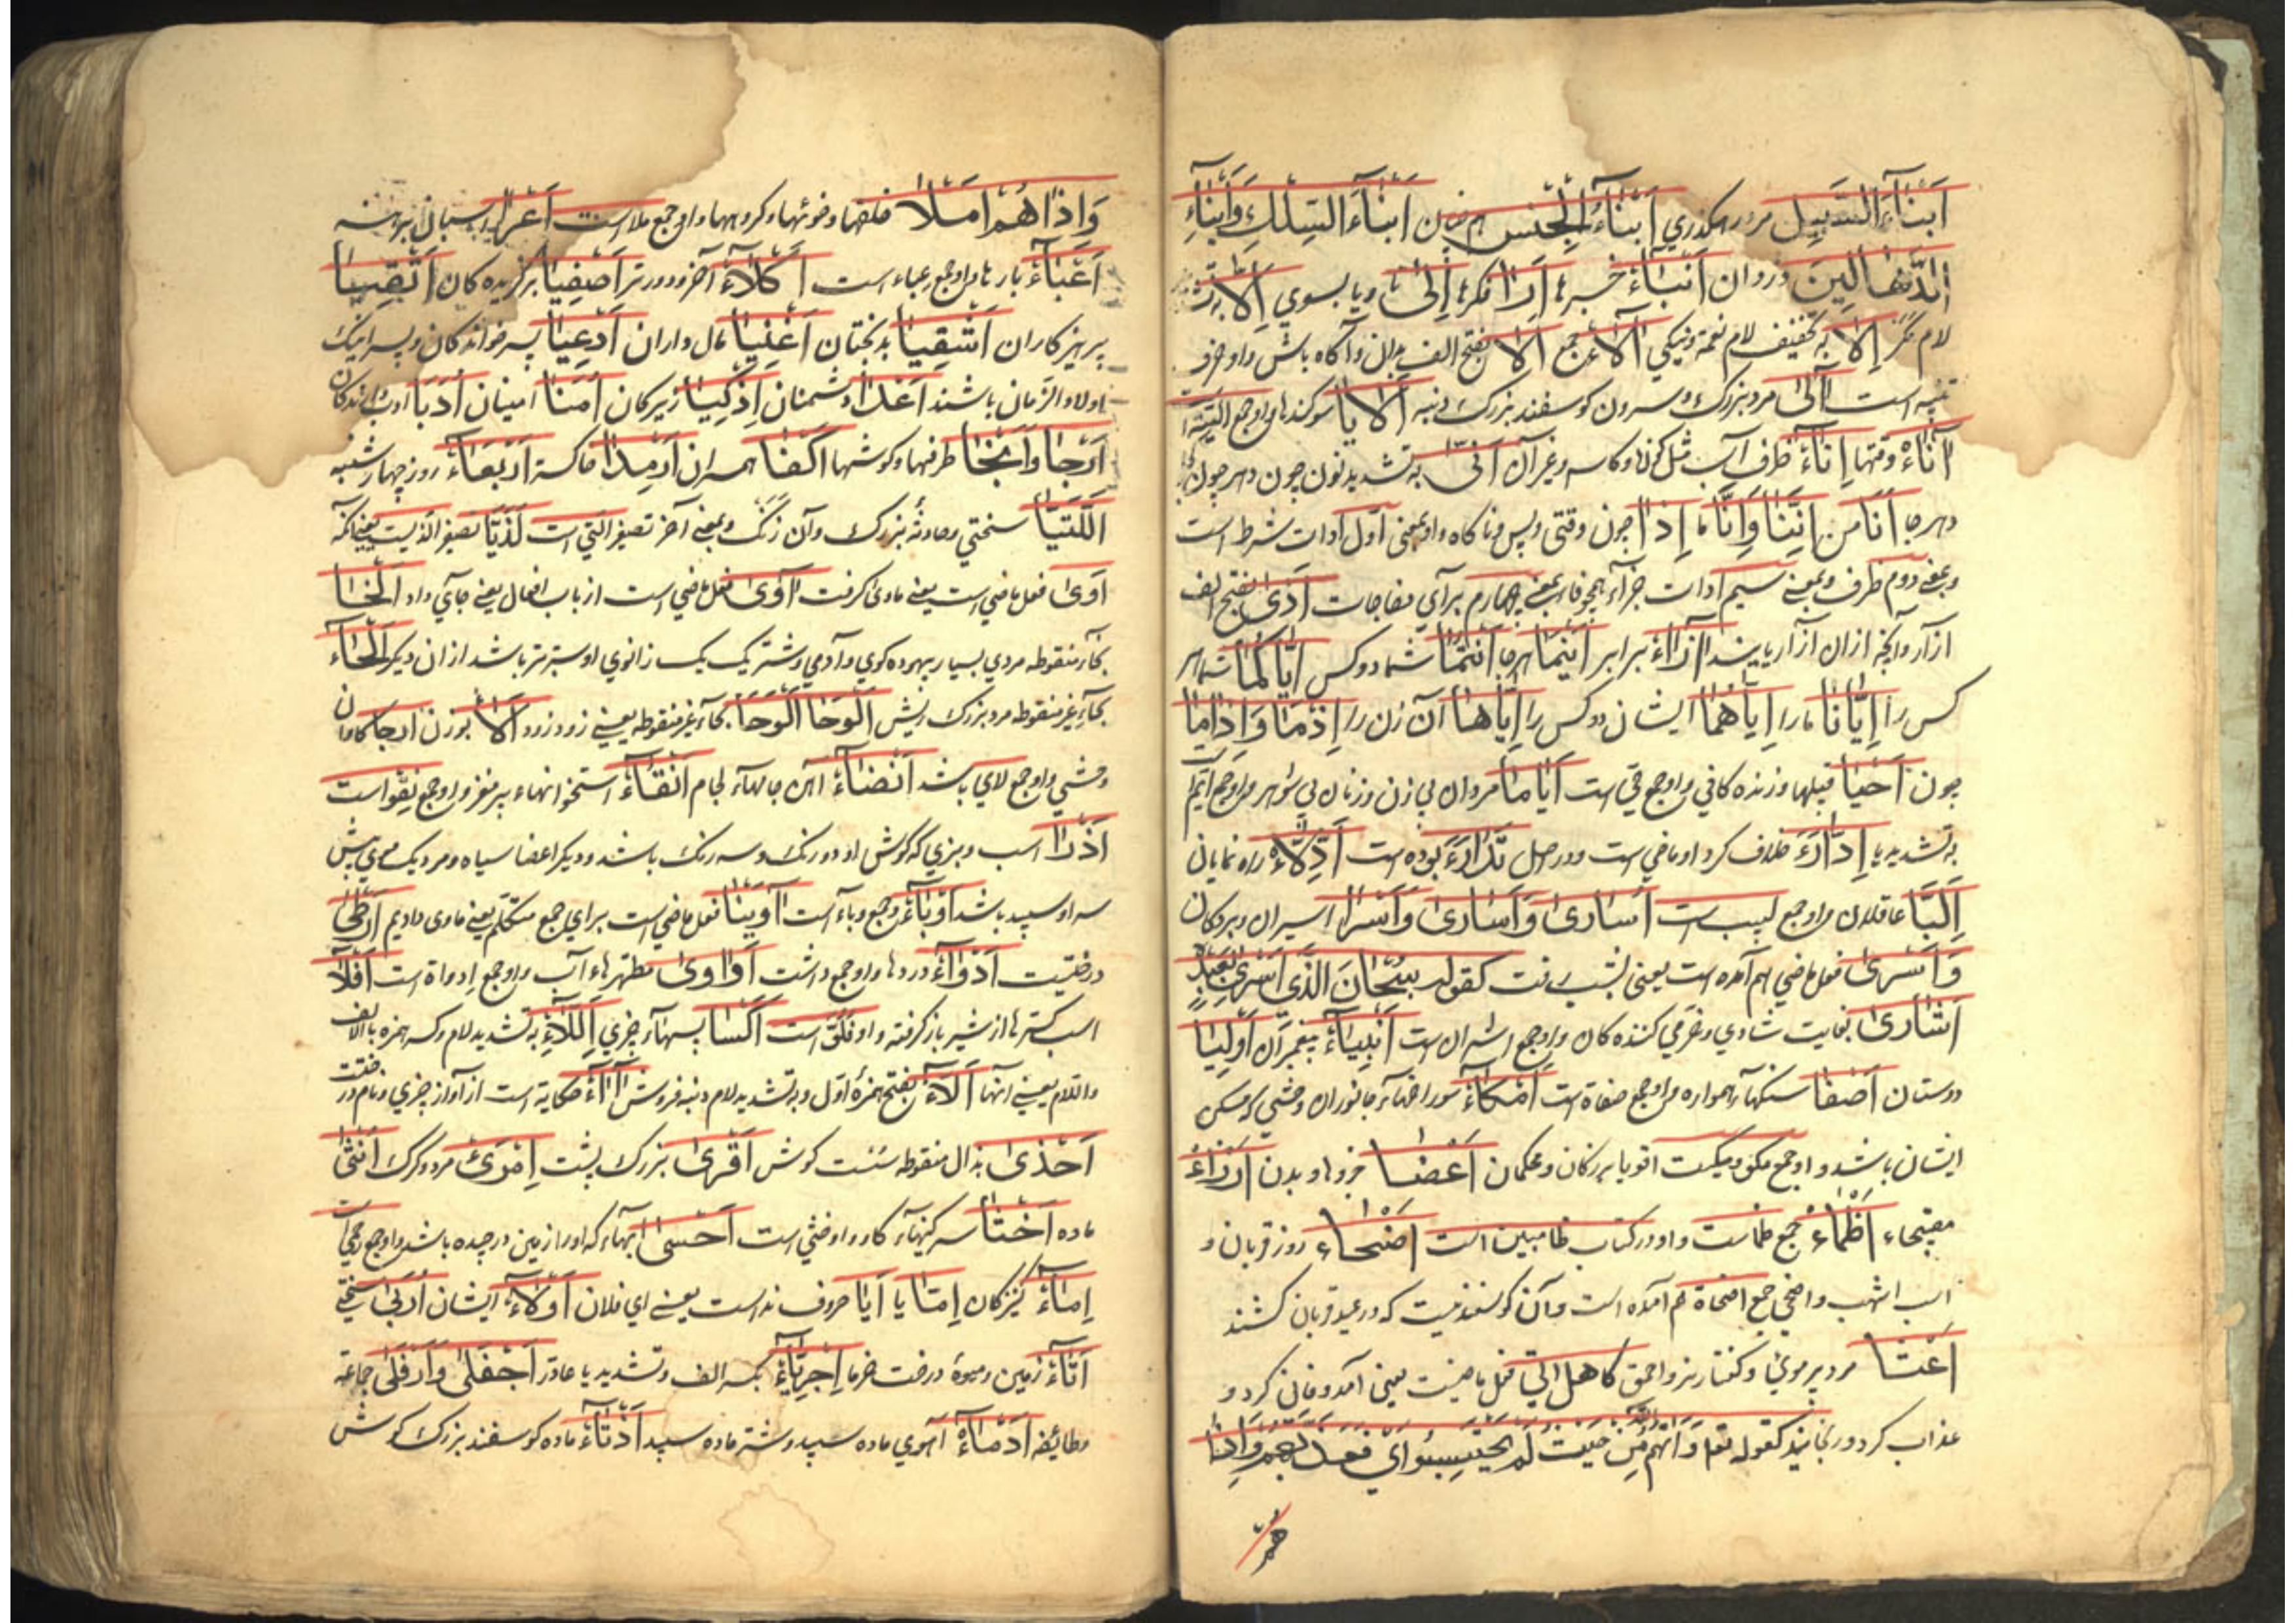 اَبْنَاءُ السَّبِیل مرد رهکذری اَبْنَاءُ الْجِنْس هم جنسان اَبْنَاءُ السِّلْكِ وَاَبْنَاءُ
الدَّهَالِینَ دزدان اَنْبَاءُ خبرها اَرَا فکرها اِلیٰ تا و یا بسوی اِلاَّ
لام مکر اِلاَ به تخفیف لام نعمة و نیکی آلاَءُ جمع اَلاَ بفتح الف بدان و آکاه باش و او حرف
تنبیه است آلیٰ مرد بزرک سرون کوسفند بزرک دنبه اَلاَیا سوکندها و او جمع الیته است
آنَاءُ وقتها اِنَاءُ ظرف آب مثل کوزه و کاسه و غیر آن اَنّیٰ به تشدید نون چون و هر چون و
و هر جا اَنَا من اِنَّنَا وَاِنَّا ما اِذَا چون وقتی و پس و ناکاه و او بمعنی اول ادوات شرط است
و بمعنی دوم ظرف و بمعنی سیم ادات جزاء همچو فا بمعنی چهارم برای مفاجات اَذیٰ بفتح الف
ازار و آنچه از ان ازار یابند اِزَاءُ برابر اَیْنَمَا هر جا اَنْتُمَا شما دو کس اِیَّاکُمَا شما هر
کس را اِیَّانَا ما را اِیَّاهُمَا ایشان دو کس را اِیَّاهَا آن زن را اِذْمَا وَاِذَامَا
چون اَحْیَا قبیلها و زنده کانی و او جمع حی است اَیَامَا مردان بی زن و زنان بی شوهر و او جمع ایّم
به تشدید یا اِدَّارَءَ خلاف کرد او ماضی است و در اصل تَدَارَءَ بوده است اَدِلاَّءُ راه نمایان
اَلِبَّا عاقلان و او جمع لبیب است اُسَاریٰ وَاَسَاریٰ وَاُسَرَا اسیران و بردکان
وَاَسْریٰ فعل ماضی هم آمده است یعنی بشب رفت کقوله سُبْحَانَ الَّذِی اَسْریٰ بِعَبْدِهِ
اُشَاریٰ بغایت شادی و خرمی کننده کان و او جمع اشران است اَنْبِیَاءُ پیغمبران اَوْلِیَا
دوستان اَصْفَا سنکهاء همواره و او جمع صفاة است اَمْکَاءُ سوراخهاء جانوران وحشی که مسکن
ایشان باشد و او جمع مکو و میکست اقویا بزرکان و محکمان اَعْضَا جزوها و بدن اَرْدَاءُ
اَظْمَاءُ جمع ظماست و او در کتاب ظا مبین است اَضْحَاء روز قربان و
اسب اشهب و اضحی جمع اضحاة هم آمده است و آن کوسفندیست که در عید قربان کشند
اَعْثَا مرد پر موی و کفتار نر و احمق کاهل اتی فعل ماضیست یعنی آمد و فانی کرد و
عذاب کرد و رنجانید کقوله تعا وَاَتَیهُمُ اللّٰهُ مِنْ حَیْثُ لَمْ یَحْتَسِبُوا اَیْ فَعَذَّبَهُمْ وَاِذَا
هُمْ
وَاِذَاهُمْ اَمْلاَ خلقها و خوئیها و کروهها و او جمع ملا است اَعْرَا اسبان برهنه
اَعْبَاءُ بارها و او جمع عباء است اَکْلاَءُ آخر و دورتر اَصْفِیَا برکزیده کان اَتْقِیَا
پرهیزکاران اَشْقِیَا بدبختان اَغْنِیَا مال داران اَدْعِیَا پسر خوانده کان و پسرانیک
اولاد الزمان باشند اَعْدَا دشمنان اَذْکِیَا زیرکان اُمَنَا امینان اُدَبَا ادب دانندکان
اَرْجَا وَاَنْحَا طرفها و کوشها اَکْفَا همسران اَرْمِدَا خاکستر اَرْبَعَاءُ روز چهارشنبه
اَللُّتَیَّا سختی و حادثهٔ بزرک و آن زنک و بمعنی آخر تصغیر التی است لَذَیَّا تصغیر الذیست یعنی آنکه
اَویٰ فعل ماضی است یعنی ماوی کرفت آویٰ فعل ماضی است از باب افعال یعنی جای داد اَلْخَا
بخاء منقوطه مردی بسیار بیهوده کوی و آدمی و شتر یک یک زانوی او ستبرتر باشد از ان دیکر اَلْحَاءُ
بحاء غیر منقوطه مرد بزرک ریش اَلْوَحَا اَلْوَحَا بحاء غیر منقوطه یعنی زود زود اَلاَء بوزن ارجا کاوان
وحشی و او جمع لای باشد اَنْضَاءُ آهن جالهاء لجام اَنْقَاءُ استخوانهاء پر مغز و او جمع نِقْو است
اَذْرَا اسب و بزی که کوش او دو رنک و سه رنک باشد و دیکر اعضا سیاه و مرد یک موی پیش
سر او سپید باشد اَوْبَاءُ و جمع وباء است آوَیْنَا فعل ماضی است برای جمع متکلم یعنی ماوی دادیم اَرْطیٰ
درختیست اَدْوَاءُ دردها و او جمع داشت اَدَاویٰ مطهرهاء آب و او جمع اِدواة است اَفْلاَ
اسب کرتها از شیر باز کرفته و او فلوّ است اَکْسَا پسهاء چیزی اَللاَّءِ به تشدید لام و کسر همزه بالالف
واللام یعنی آنها اَلاَّءُ بفتح همزهٔ اول و به تشدید لام دنبه فروش آاءُ حکایة است از آواز چیزی و نام درختیست
اَخْذیٰ بذال منقوطه سست کوش اَقْریٰ بزرک پشت اِمْرَئُ مرد و کرک اُنْثیٰ
ماده اَخْثَا سرکینهاء کاو و او خثی است اَحْسیٰ آبهاء که او را از زمین در چیده باشند و او جمع حِسی است
اِمَاءُ کنیزکان اِمَّا یا اَیَا حروف نداست یعنی ای فلان اُوْلاَءِ ایشان اُرَبیٰ سختی
اَتَاءُ زمین و میوهٔ درخت خرما اِجْرِیَّاءُ بکسر الف و تشدید یا عادة اَجْفَلیٰ وَاَرْفَلیٰ جماعة
و طائیفه اَدْمَاءُ آهوی ماده سپید و شتر ماده سپید اَذْنَاءُ ماده کوسفند بزرک کوش